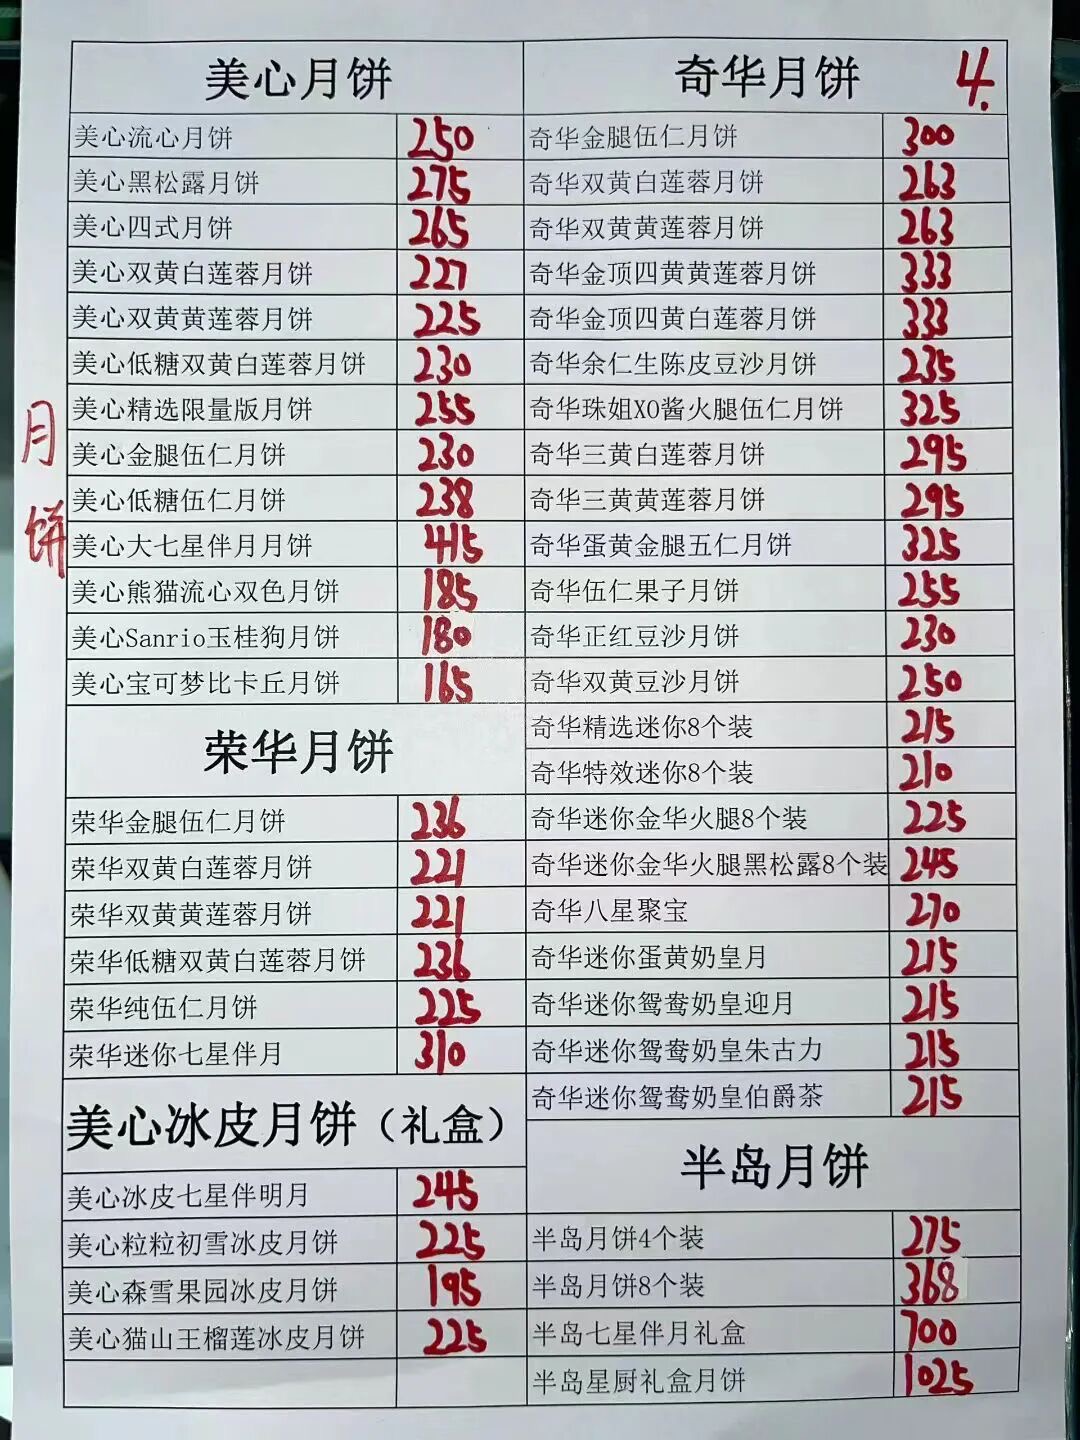 4.
月
饼
美心月饼
美心流心月饼 250
美心黑松露月饼 275
美心四式月饼 265
美心双黄白莲蓉月饼 227
美心双黄黄莲蓉月饼 225
美心低糖双黄白莲蓉月饼 230
美心精选限量版月饼 255
美心金腿伍仁月饼 230
美心低糖伍仁月饼 238
美心大七星伴月月饼 415
美心熊猫流心双色月饼 185
美心Sanrio玉桂狗月饼 180
美心宝可梦比卡丘月饼 165
荣华月饼
荣华金腿伍仁月饼 236
荣华双黄白莲蓉月饼 221
荣华双黄黄莲蓉月饼 221
荣华低糖双黄白莲蓉月饼 236
荣华纯伍仁月饼 225
荣华迷你七星伴月 310
美心冰皮月饼（礼盒）
美心冰皮七星伴明月 245
美心粒粒初雪冰皮月饼 225
美心森雪果园冰皮月饼 195
美心猫山王榴莲冰皮月饼 225
奇华月饼
奇华金腿伍仁月饼 300
奇华双黄白莲蓉月饼 263
奇华双黄黄莲蓉月饼 263
奇华金顶四黄黄莲蓉月饼 333
奇华金顶四黄白莲蓉月饼 333
奇华余仁生陈皮豆沙月饼 235
奇华珠姐XO酱火腿伍仁月饼 325
奇华三黄白莲蓉月饼 295
奇华三黄黄莲蓉月饼 295
奇华蛋黄金腿五仁月饼 325
奇华伍仁果子月饼 255
奇华正红豆沙月饼 230
奇华双黄豆沙月饼 250
奇华精选迷你8个装 215
奇华特效迷你8个装 210
奇华迷你金华火腿8个装 225
奇华迷你金华火腿黑松露8个装 245
奇华八星聚宝 270
奇华迷你蛋黄奶皇月 215
奇华迷你鸳鸯奶皇迎月 215
奇华迷你鸳鸯奶皇朱古力 215
奇华迷你鸳鸯奶皇伯爵茶 215
半岛月饼
半岛月饼4个装 275
半岛月饼8个装 368
半岛七星伴月礼盒 700
半岛星厨礼盒月饼 1025